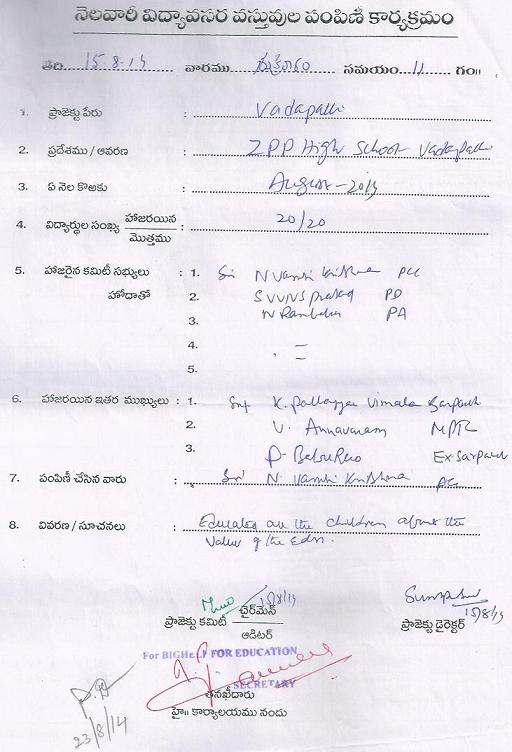 నెలవారీ విద్యావసర వస్తువుల పంపిణి కార్యక్రమం
తేది 15.8.14 వారము శుక్రవారం సమయం 11 గం॥
1. ప్రాజెక్టు పేరు : Vadapalli
2. ప్రదేశము / ఆవరణ : ZPP High School Vadapalli
3. ఏ నెల కొఱకు : August-2014
4. విద్యార్థుల సంఖ్య హాజరయిన / మొత్తము : 20/20
5. హాజరైన కమిటీ సభ్యులు : 1. Sri N Vamsi Krishna PCC
హోదాతో 2. SVVNS Prasad PD
3. N Rambabu PA
4.
5.
6. హాజరయిన ఇతర ముఖ్యులు : 1. Smt K. Vimala Sarpanch
2. V. Annavaram MPTC
3. P. Babu Rao Ex Sarpanch
7. పంపిణీ చేసిన వారు : Sri N. Vamsi Krishna
8. వివరణ / సూచనలు : Educated all the children about the
Value of the Edn.
15/8/14
ప్రాజెక్టు కమిటీ చైర్‌మెన్ / ఆడిటర్
15/8/14
ప్రాజెక్టు డైరెక్టర్
For BIGHELP FOR EDUCATION
SECRETARY
తనఖీదారు
హై॥ కార్యాలయము నందు
23/8/14